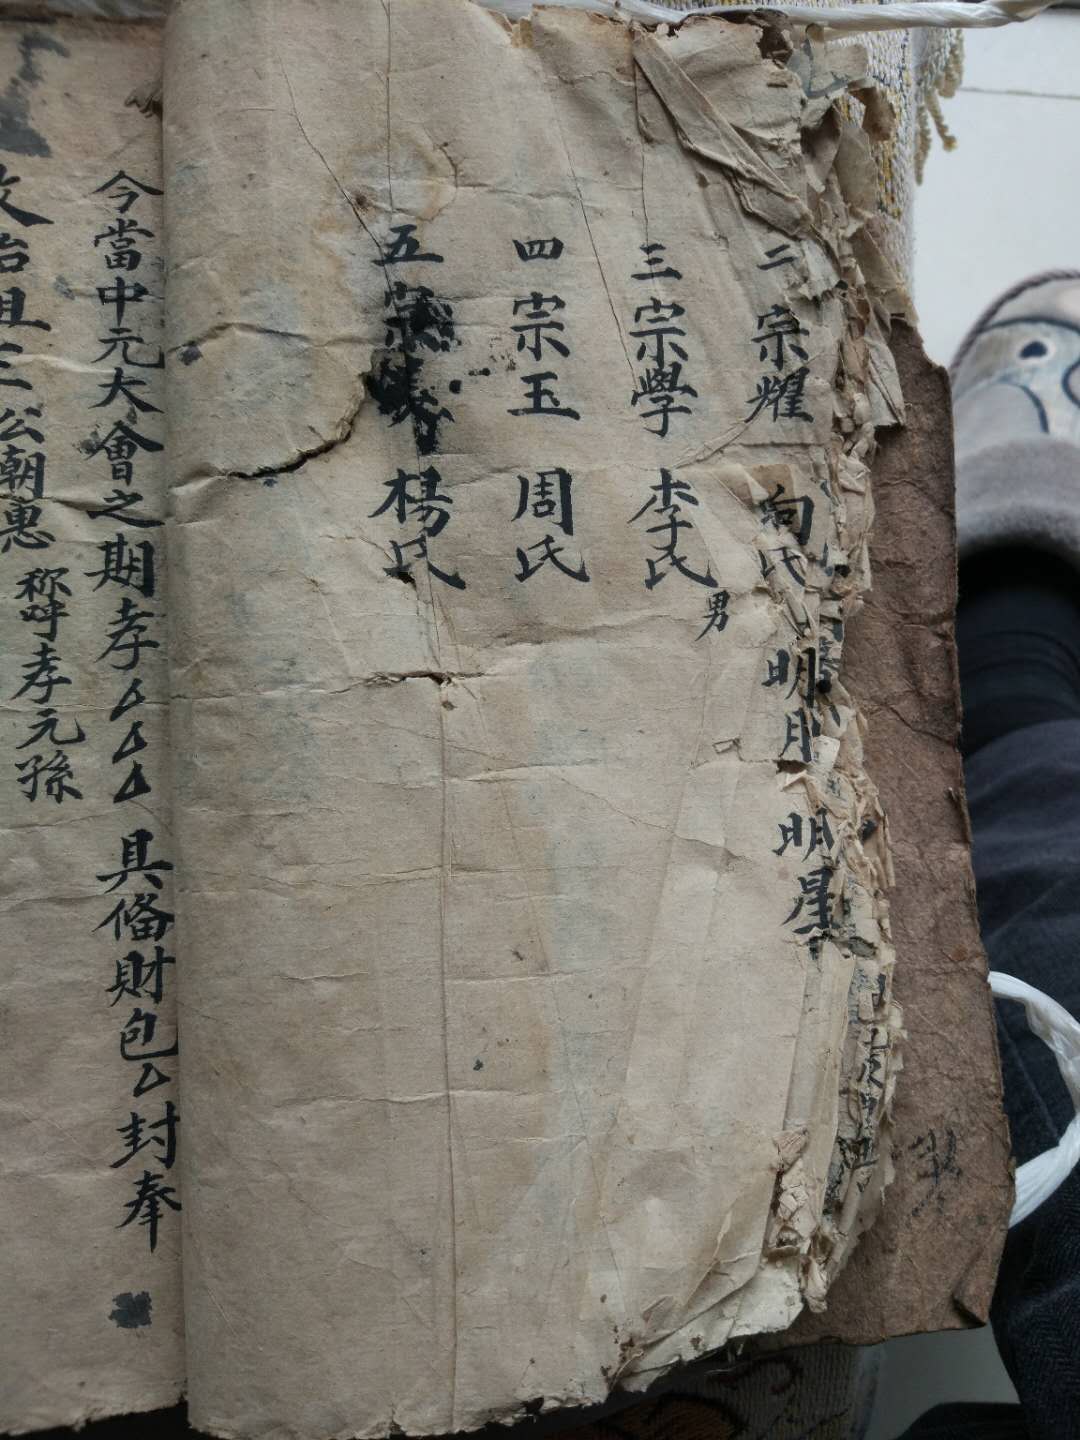 二宗耀 向氏 明月 明星
三宗學 李氏 男
四宗玉 周氏
五宗 楊氏
今當中元大會之期孝厶厶厶具俻財包厶封奉
故始祖三公朝惠 称呼孝元孫